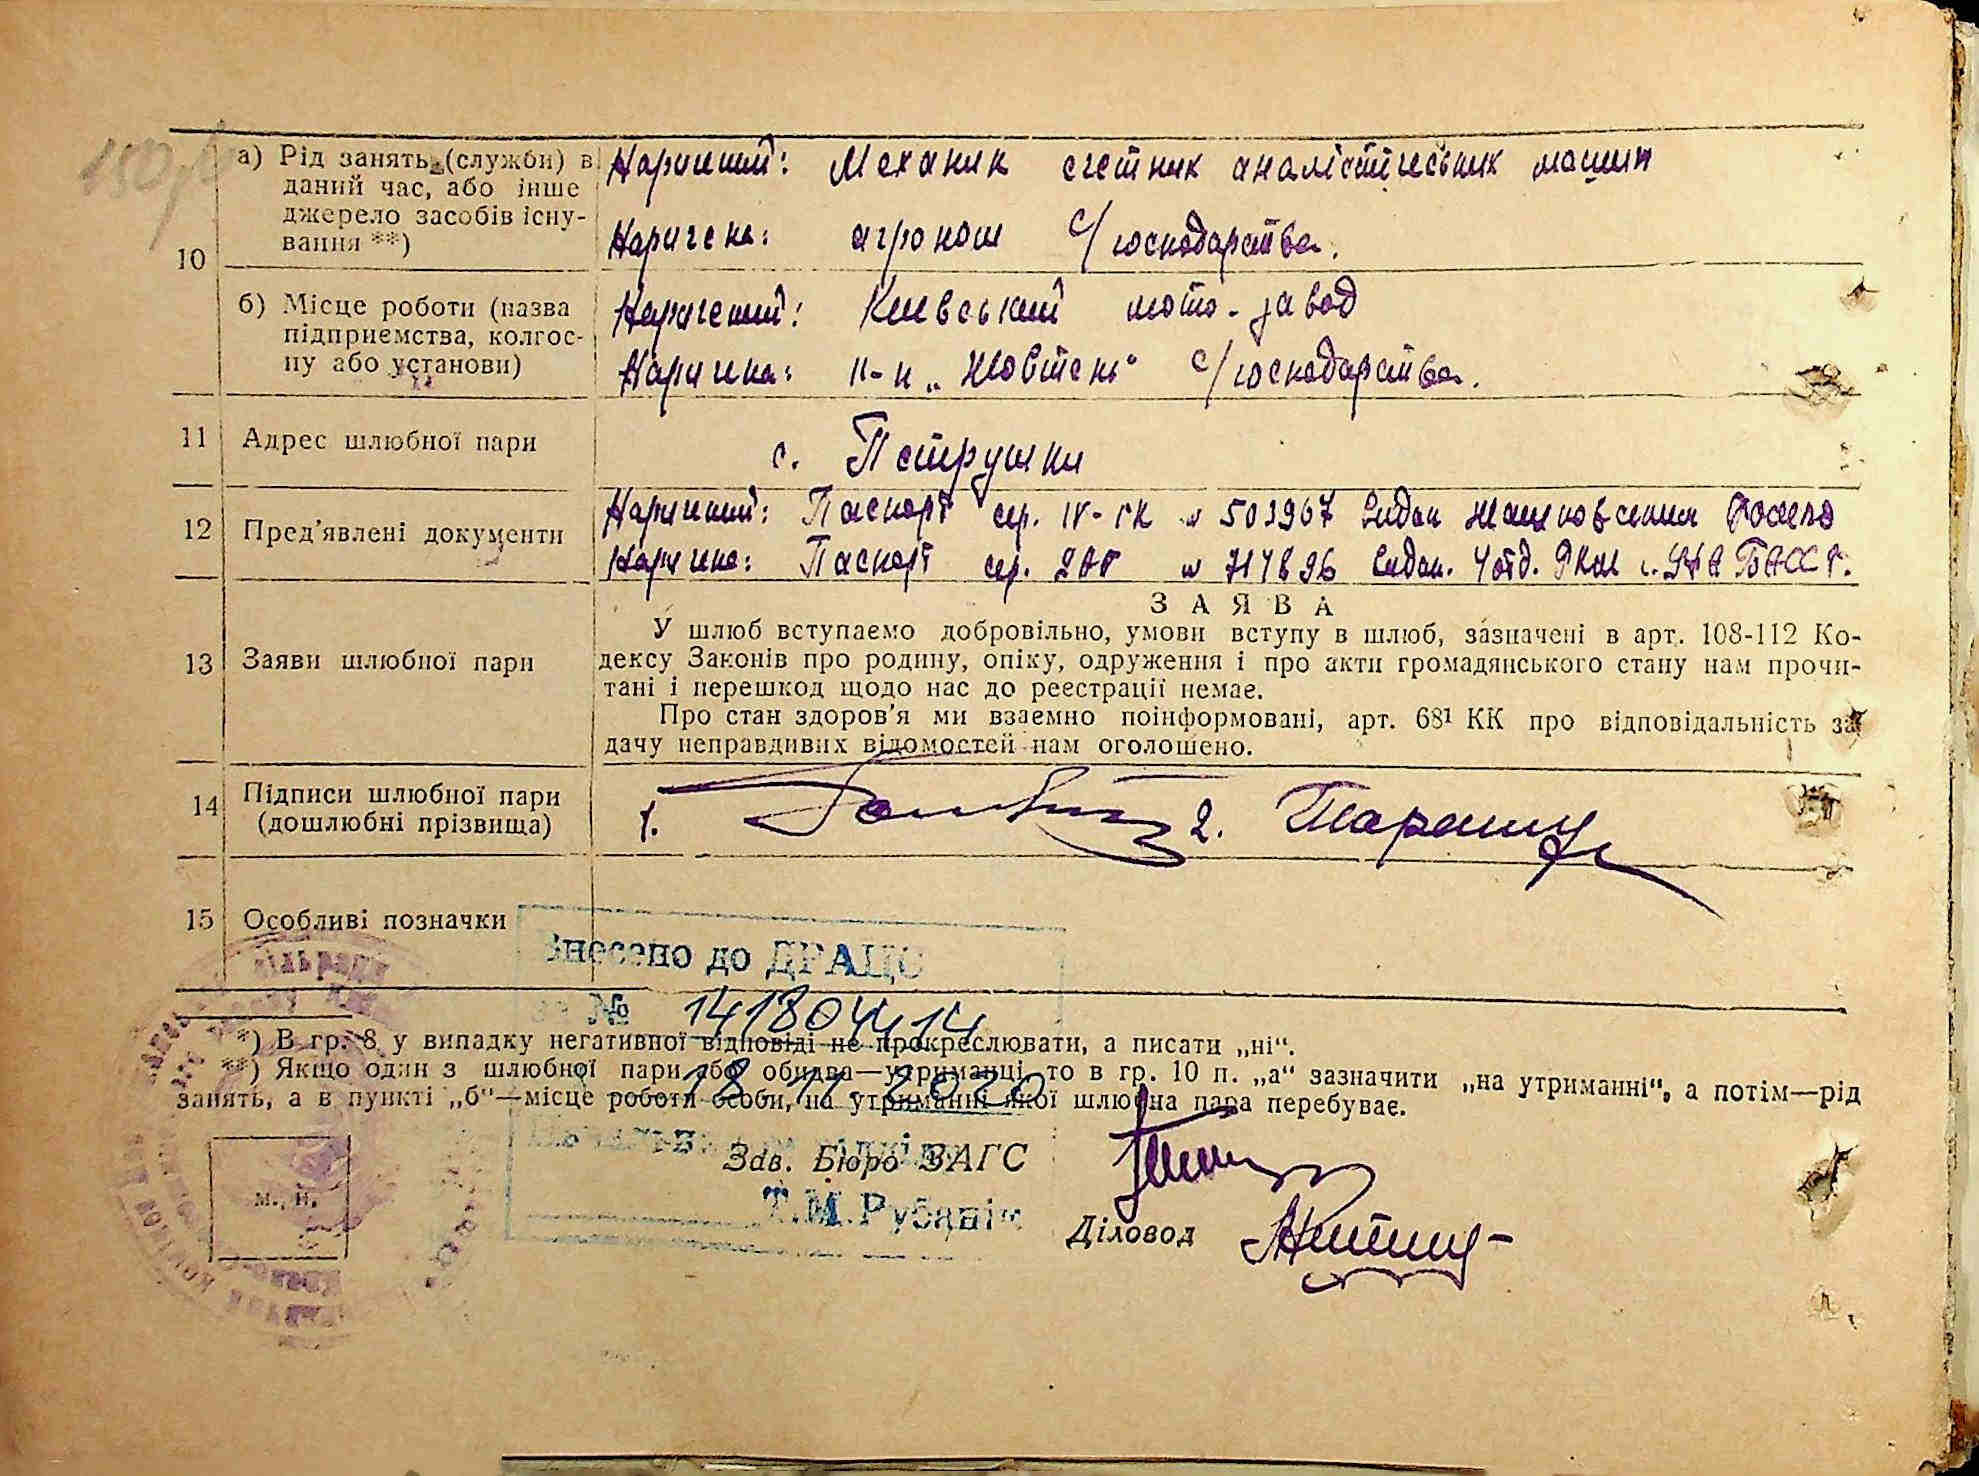 150р
10
а) Рід занять (служби) в
даний час, або інше
джерело засобів існу-
вання **)
Наричений: Механик счетник аналістичєських машин
Наричена: агроном с/господарства.
б) Місце роботи (назва
підприємства, колгос-
пу або установи)
Наречений: Киевський мото-завод
Наричена: к-п „Жовтень" с/господарства.
11 Адрес шлюбної пари
с. Петрушки
12 Пред'явлені документи
Наричений: Паспорт сер. IV-ГК № 503967 видан
Наричена: Паспорт сер. № 717896 видан. 4 отд. БАССР.
13 Заяви шлюбної пари
ЗАЯВА
У шлюб вступаємо добровільно, умови вступу в шлюб, зазначені в арт. 108-112 Ко-
дексу Законів про родину, опіку, одруження і про акти громадянського стану нам прочи-
тані і перешкод щодо нас до реестрації немає.
Про стан здоров'я ми взаємно поінформовані, арт. 68¹ КК про відповідальність за
дачу неправдивих відомостей нам оголошено.
14 Підписи шлюбної пари
(дошлюбні прізвища)
1. 2.
15 Особливі позначки
Внесено до ДРАЦС
за № 141804414
*) В гр. 8 у випадку негативної відповіді не прокреслювати, а писати „ні".
**) Якщо один з шлюбної пари або обидва—утриманці, то в гр. 10 п. „а" зазначити „на утриманні", а потім—рід
занять, а в пункті „б"—місце роботи особи, на утриманні якої шлюбна пара перебуває.
18.11.2020
Зав. Бюро ЗАГС
Т.М.Рубаник
м. п.
Діловод